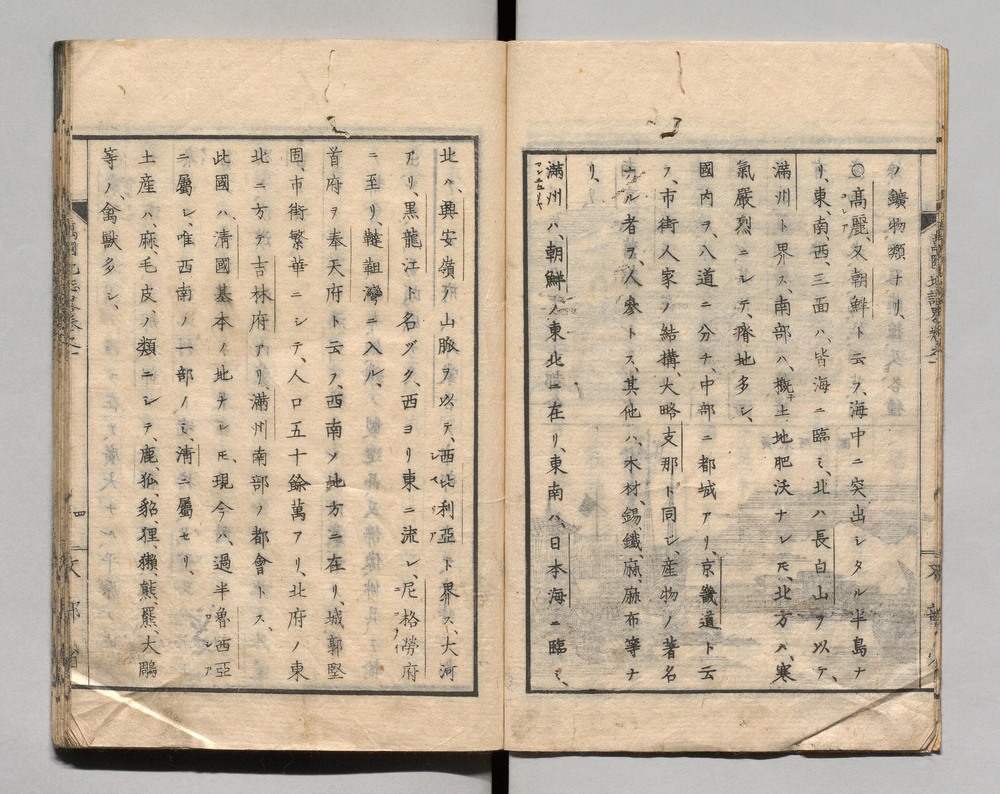 ノ鑛物類ナリ、
○高麗、又朝鮮ト云フ、海中ニ突出シタル半島ナ
リ、東、南、西、三面ハ、皆海ニ臨ミ、北ハ長白山ヲ以テ、
滿州ト界ス、南部ハ、概子土地肥沃ナレ𪜈、北方ハ、寒
氣嚴烈ニシテ、瘠地多シ、
國内ヲ、八道ニ分チ、中部ニ都城アリ、京畿道ト云
フ、市街人家ノ結構、大略支那ト同ジ、産物ノ著名
ナル者ヲ、人參トス、其他ハ、木材、錫、鐵、麻、麻布等ナ
リ、
滿州ハ、朝鮮ノ東北ニ在リ、東南ハ、日本海ニ臨ミ、
北ハ、興安嶺ノ山脈ヲ以テ、西比利亞ト界ス、大河
アリ、黒龍江ト名グク、西ヨリ東ニ流レ、尼格勞府
ニ至リ、韃靼灣ニ入ル、
首府ヲ奉天府ト云フ、西南ノ地方ニ在リ、城郭堅
固、市街繁華ニシテ、人口五十餘萬アリ、北府ノ東
北ニ方テ吉林府アリ、滿州南部ノ都會トス、
此國ハ、清國基本ノ地ナレ𪜈、現今ハ、過半魯西亞
ニ屬シ、唯西南ノ一部ノミ、清ニ屬セリ、
土産ハ、麻、毛皮、ノ類ニシテ、鹿、狐、貂、狸、獺、熊、羆、大鵰
等ノ禽獸多シ、
四
文部省